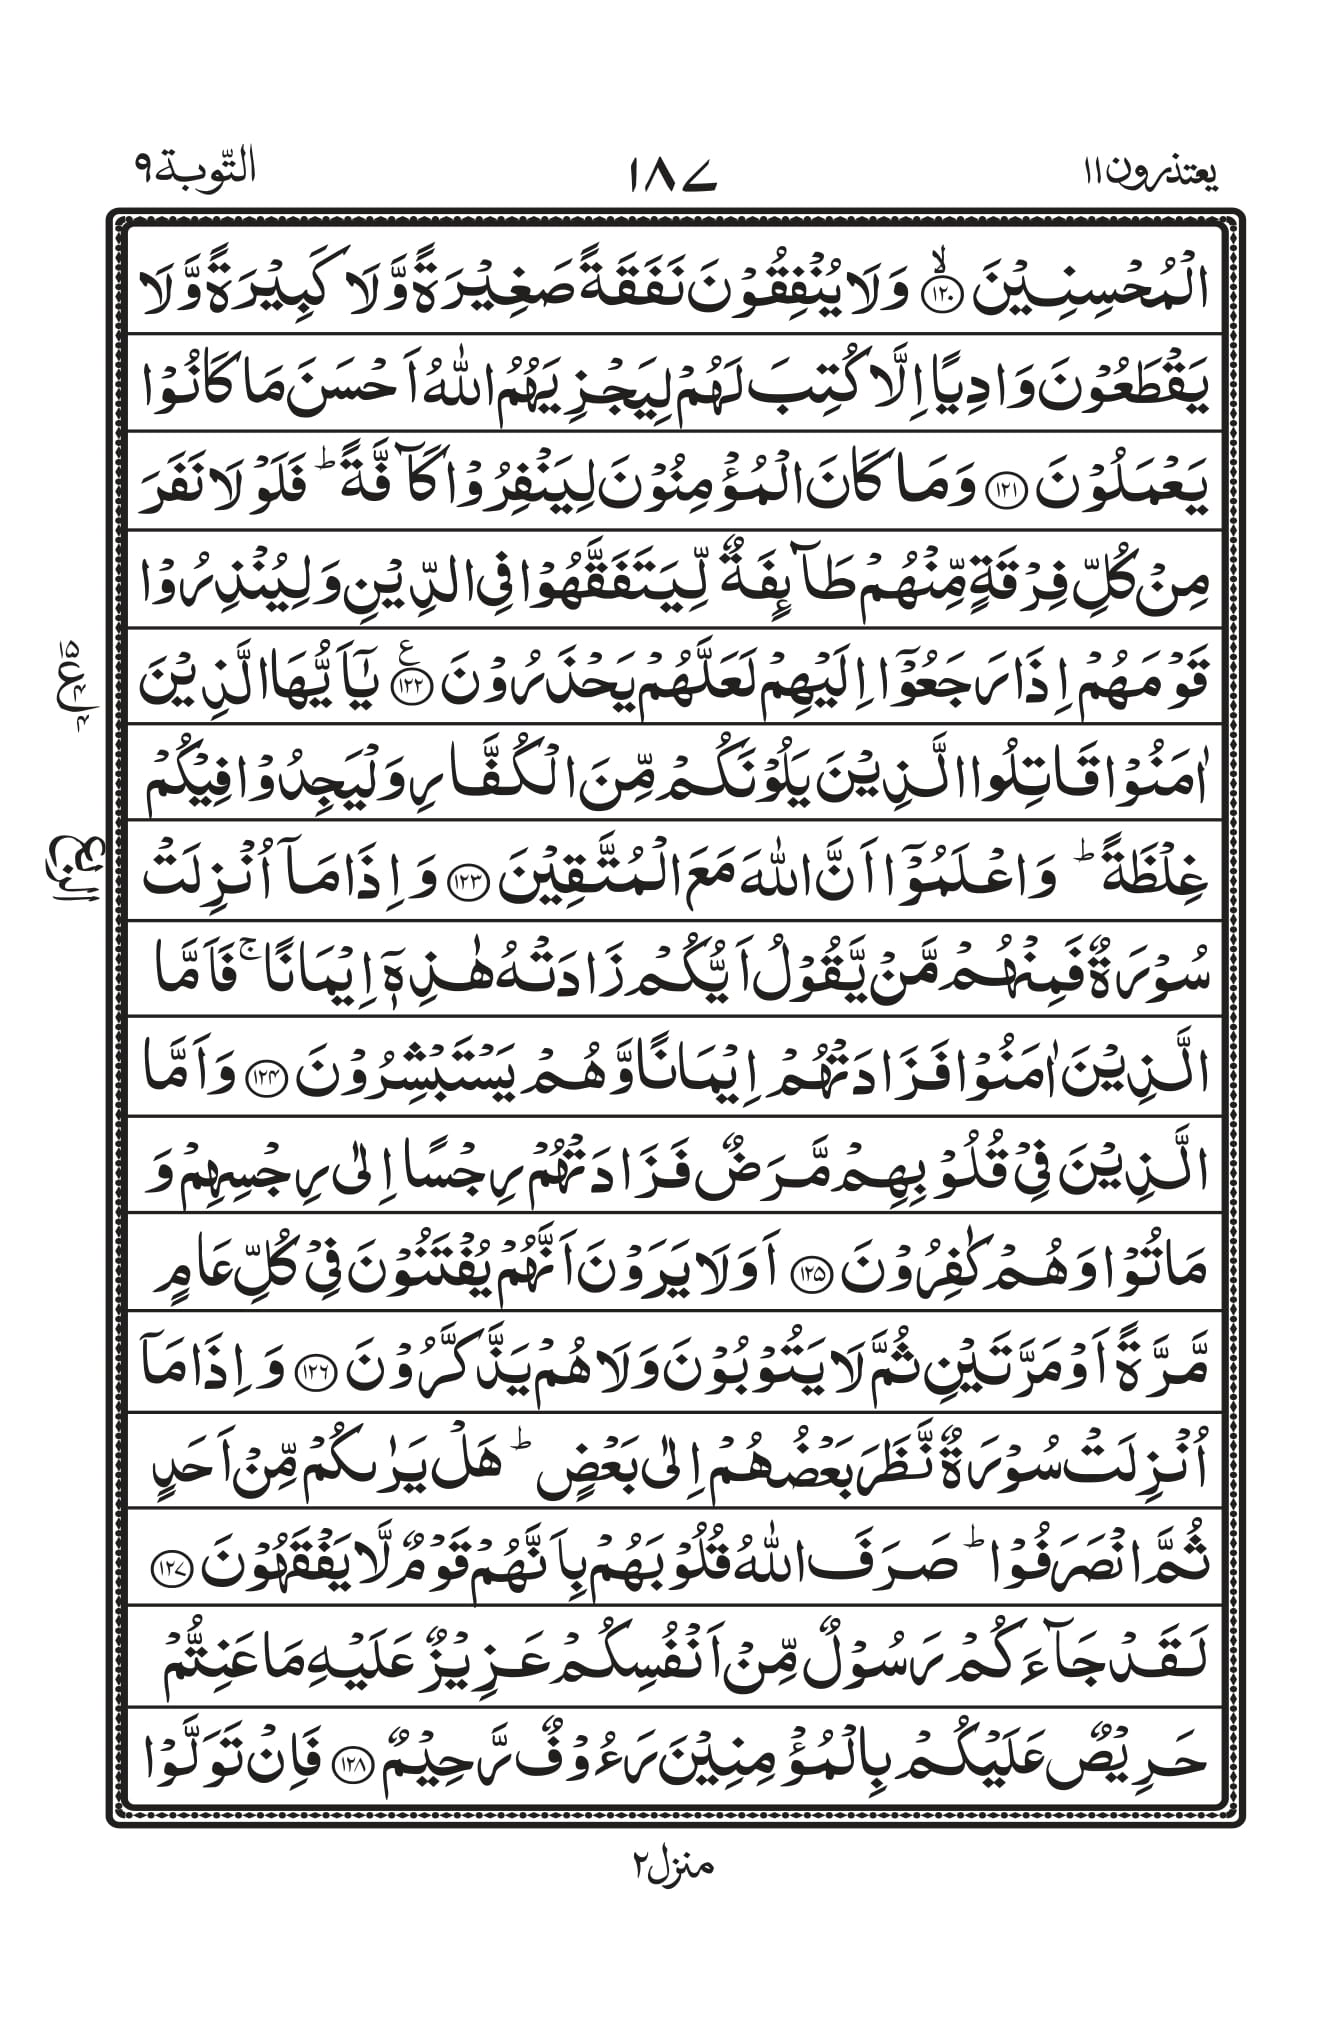 یعتذرون ۱۱
۱۸۷
التّوبة ۹
الْمُحْسِنِيْنَ ۙ‏﴿۱۲۰﴾ وَلَا يُنْفِقُوْنَ نَفَقَةً صَغِيْرَةً وَّلَا كَبِيْرَةً وَّلَا
يَقْطَعُوْنَ وَادِيًا اِلَّا كُتِبَ لَهُمْ لِيَجْزِيَهُمُ اللّٰهُ اَحْسَنَ مَا كَانُوْا
يَعْمَلُوْنَ ﴿۱۲۱﴾ وَمَا كَانَ الْمُؤْمِنُوْنَ لِيَنْفِرُوْا كَآفَّةً ؕ فَلَوْلَا نَفَرَ
مِنْ كُلِّ فِرْقَةٍ مِّنْهُمْ طَآئِفَةٌ لِّيَتَفَقَّهُوْا فِى الدِّيْنِ وَلِيُنْذِرُوْا
قَوْمَهُمْ اِذَا رَجَعُوْۤا اِلَيْهِمْ لَعَلَّهُمْ يَحْذَرُوْنَ ﴿۱۲۲﴾ ع يٰۤاَيُّهَا الَّذِيْنَ
۱۵ ع ۴ ۴
اٰمَنُوْا قَاتِلُوا الَّذِيْنَ يَلُوْنَكُمْ مِّنَ الْكُفَّارِ وَلْيَجِدُوْا فِيْكُمْ
غِلْظَةً ؕ وَاعْلَمُوْۤا اَنَّ اللّٰهَ مَعَ الْمُتَّقِيْنَ ﴿۱۲۳﴾ وَاِذَا مَاۤ اُنْزِلَتْ
سُوْرَةٌ فَمِنْهُمْ مَّنْ يَّقُوْلُ اَيُّكُمْ زَادَتْهُ هٰذِهٖۤ اِيْمَانًا ۚ فَاَمَّا
الَّذِيْنَ اٰمَنُوْا فَزَادَتْهُمْ اِيْمَانًا وَّهُمْ يَسْتَبْشِرُوْنَ ﴿۱۲۴﴾ وَاَمَّا
الَّذِيْنَ فِىْ قُلُوْبِهِمْ مَّرَضٌ فَزَادَتْهُمْ رِجْسًا اِلٰى رِجْسِهِمْ وَ
مَاتُوْا وَهُمْ كٰفِرُوْنَ ﴿۱۲۵﴾ اَوَلَا يَرَوْنَ اَنَّهُمْ يُفْتَنُوْنَ فِىْ كُلِّ عَامٍ
مَّرَّةً اَوْ مَرَّتَيْنِ ثُمَّ لَا يَتُوْبُوْنَ وَلَا هُمْ يَذَّكَّرُوْنَ ﴿۱۲۶﴾ وَاِذَا مَاۤ
اُنْزِلَتْ سُوْرَةٌ نَّظَرَ بَعْضُهُمْ اِلٰى بَعْضٍ ؕ هَلْ يَرٰىكُمْ مِّنْ اَحَدٍ
ثُمَّ انْصَرَفُوْا ؕ صَرَفَ اللّٰهُ قُلُوْبَهُمْ بِاَنَّهُمْ قَوْمٌ لَّا يَفْقَهُوْنَ ﴿۱۲۷﴾
لَقَدْ جَآءَكُمْ رَسُوْلٌ مِّنْ اَنْفُسِكُمْ عَزِيْزٌ عَلَيْهِ مَا عَنِتُّمْ
حَرِيْصٌ عَلَيْكُمْ بِالْمُؤْمِنِيْنَ رَءُوْفٌ رَّحِيْمٌ ﴿۱۲۸﴾ فَاِنْ تَوَلَّوْا
منزل ۲